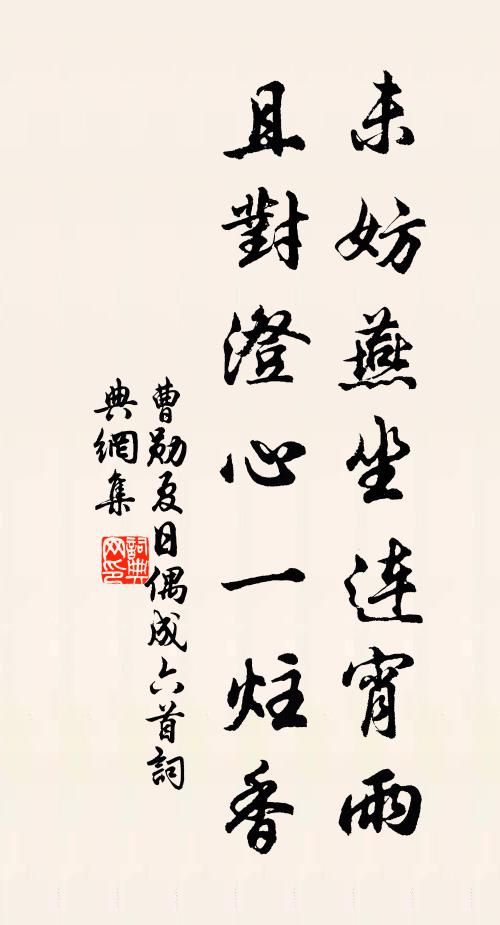 未妨燕坐連宵雨
且對澄心一炷香
曹勛夏日偶成六首詞
典網集
詞典网印